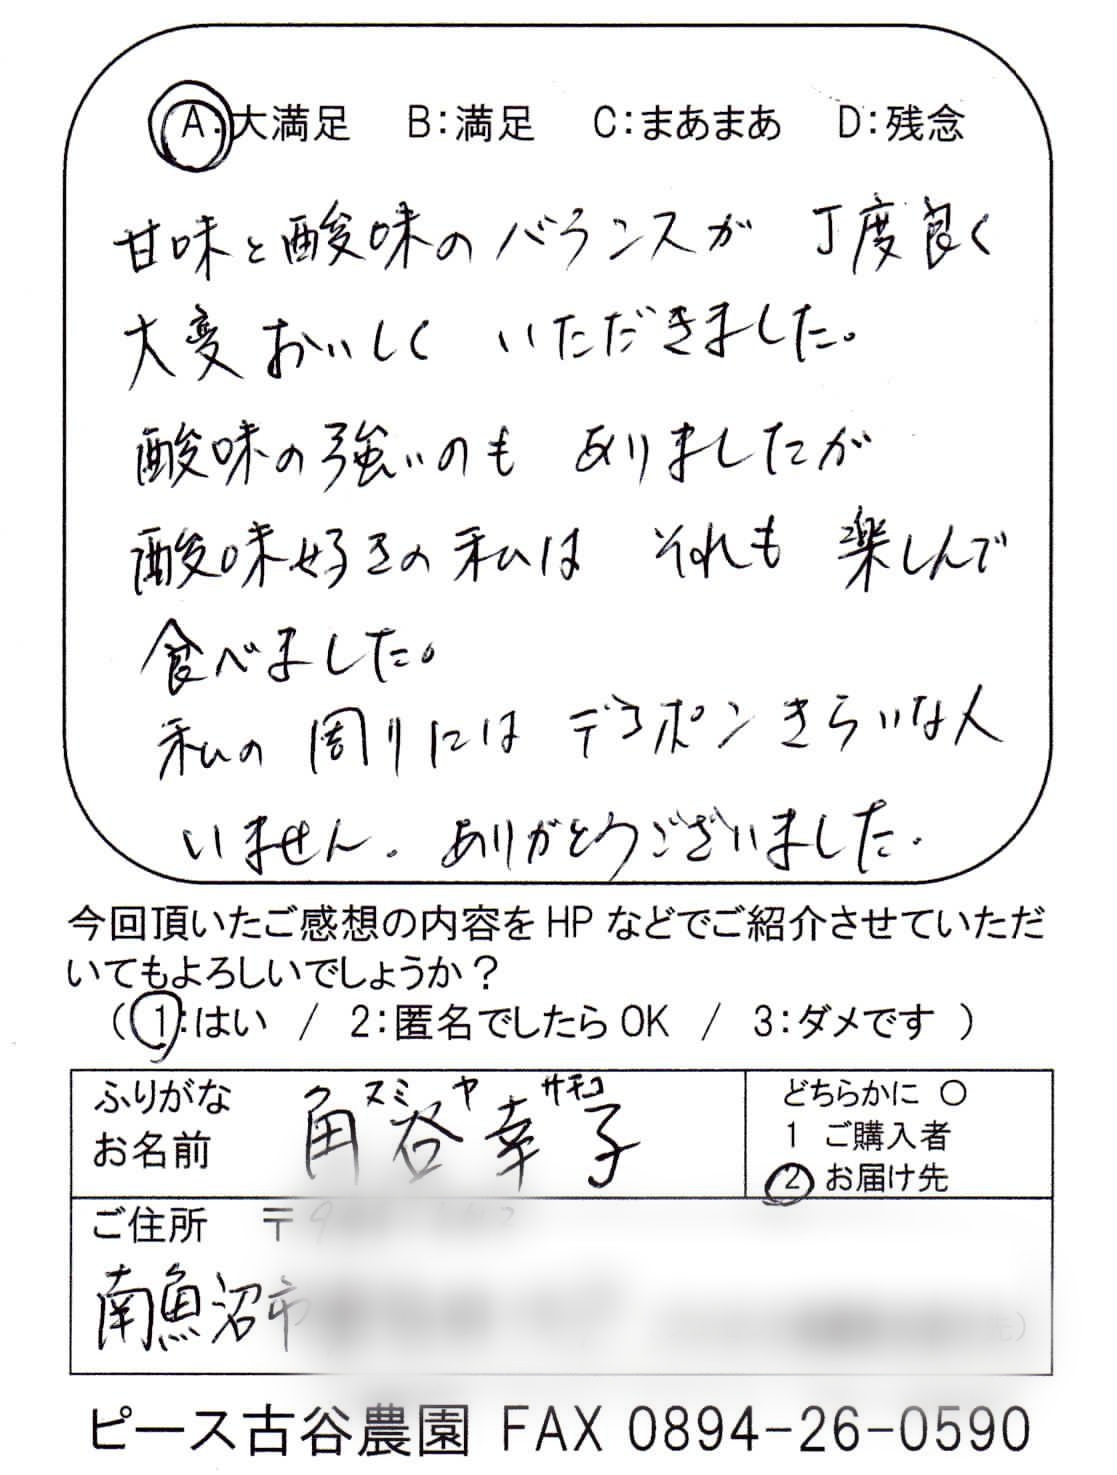 A:大満足　B:満足　C:まあまあ　D:残念
甘味と酸味のバランスが　丁度良く
大変おいしく　いただきました。
酸味の強いのも　ありましたが
酸味好きの私は　それも　楽しんで
食べました。
私の　周りには　デコポン　きらいな人
いません。ありがとうございました。
今回頂いたご感想の内容を HP などでご紹介させていただ
いてもよろしいでしょうか？
（ 1:はい　/　2:匿名でしたら OK　/　3:ダメです ）
ふりがな　スミ　ヤ　サチコ
お名前　角谷幸子
どちらかに ○
1 ご購入者
2 お届け先
ご住所　〒
南魚沼市
ピース古谷農園 FAX 0894-26-0590